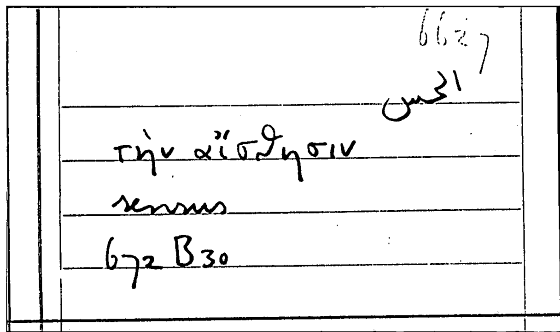 6627
الحس
τὴν αἴσθησιν
sensus
672 B 30